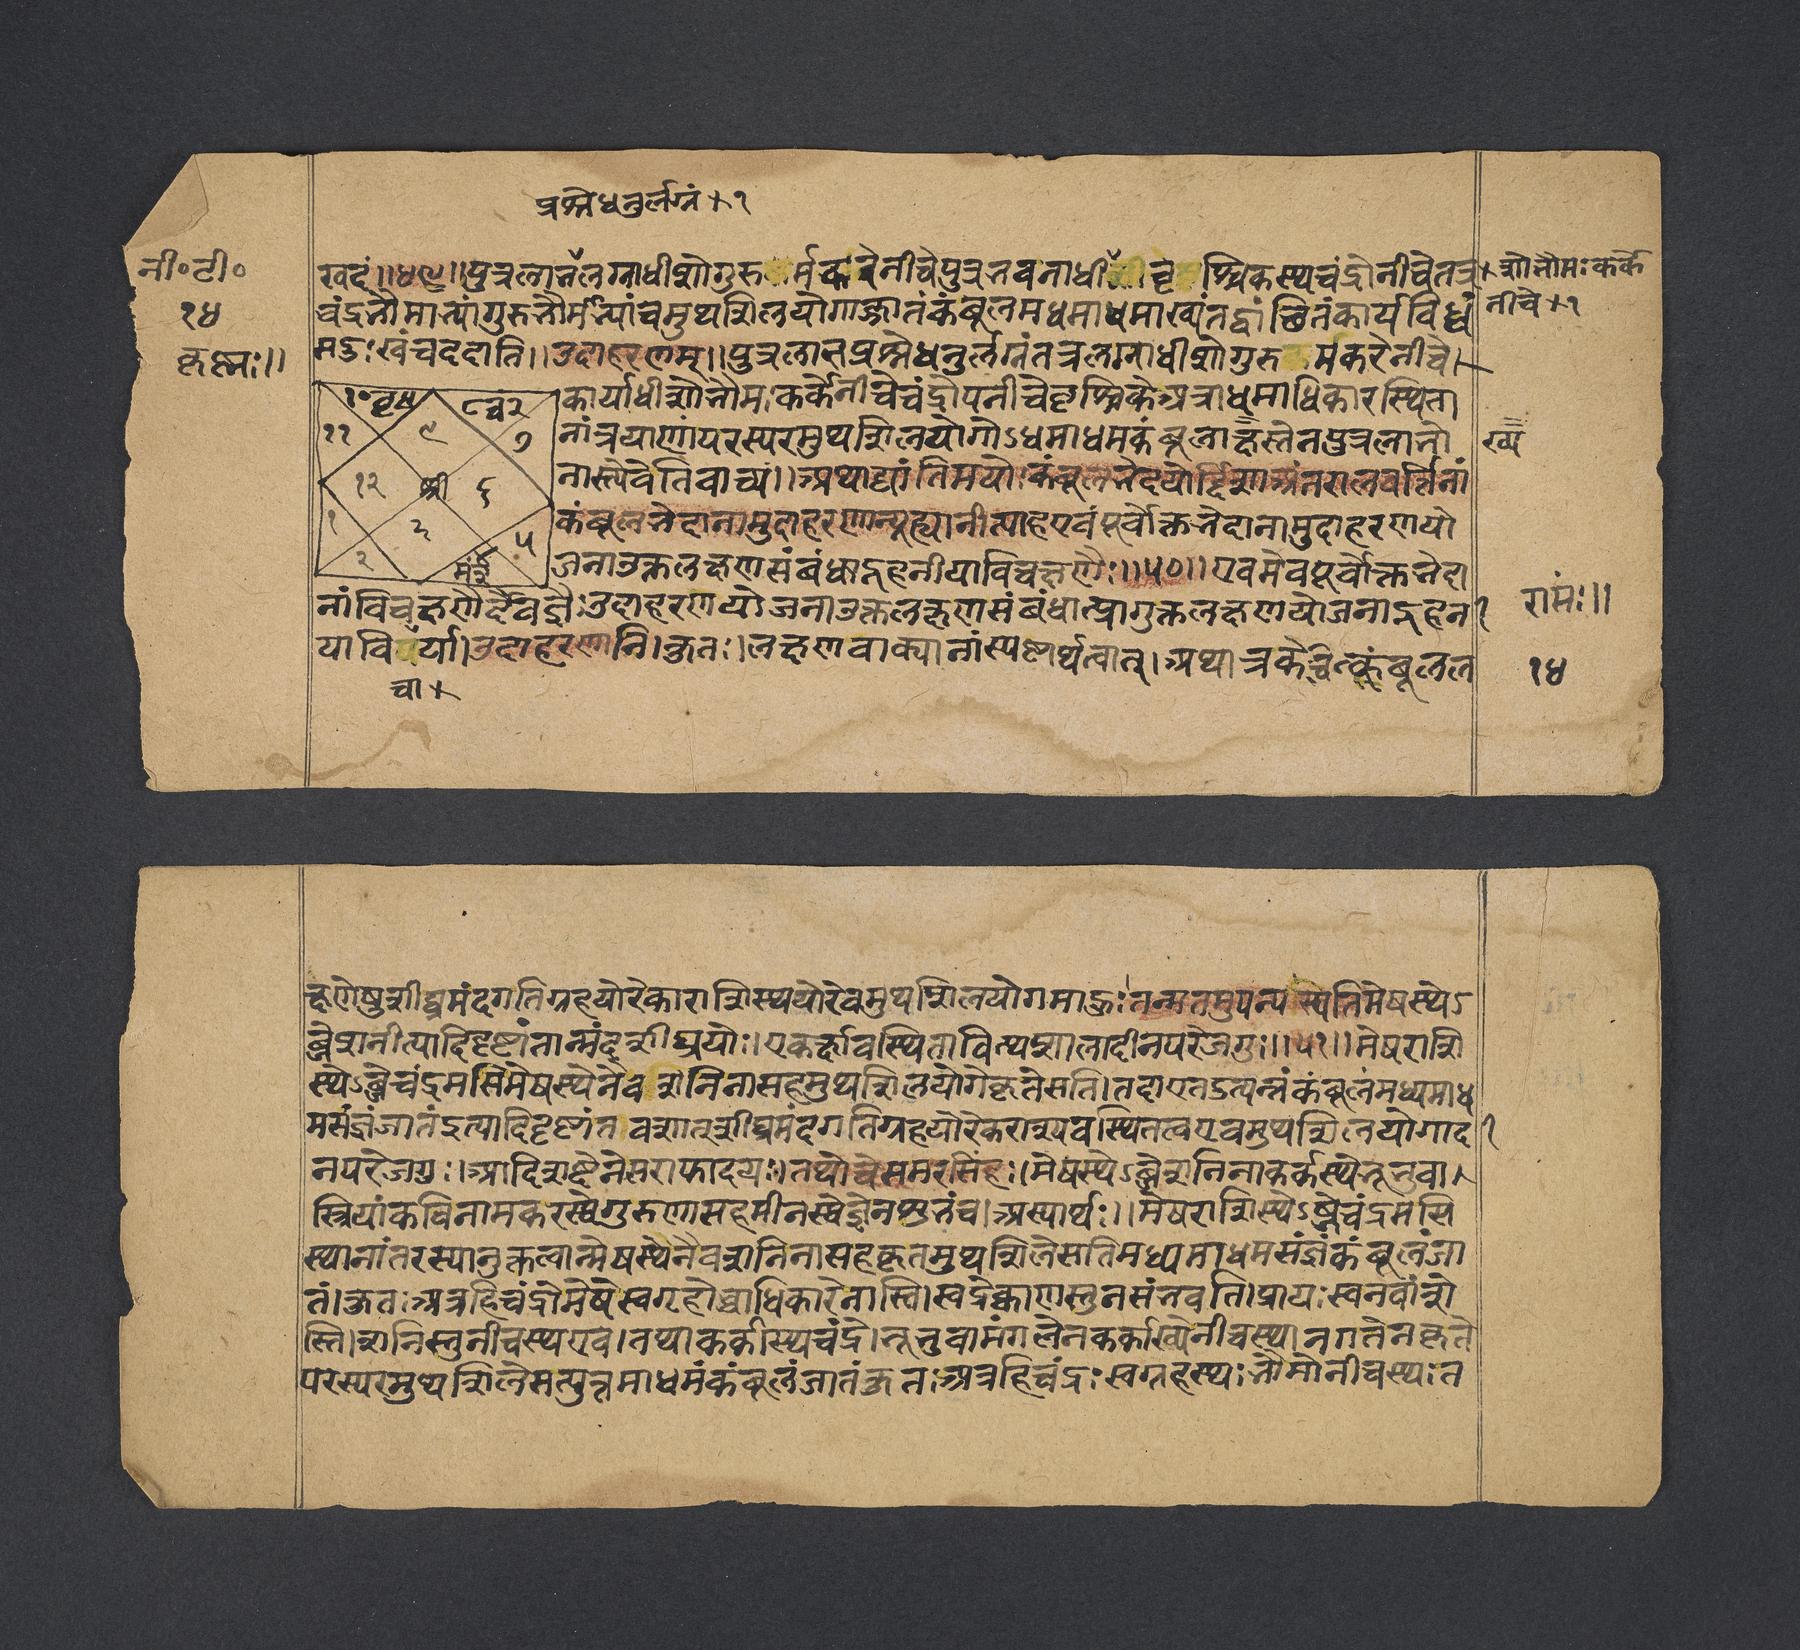 प्रश्नेधनुर्लग्नं ×१
नी॰टी॰
१४
कृष्णः॥
खदं॥४९॥पुत्रलाभेलग्नाधीशोगुरु मकरेनीचेपुत्रभवनाधी वृश्चिकस्थचंद्रोनीचेतत्र
शोभौमःकर्के
नीचे×१
चंद्रभौमाभ्यांगुरुभौमाभ्यांचमुथशिलयोगाज्जातंकंबूलमधमाधमाख्यंतद्वांछितंकार्यविध्वं
मदुःखंचददाति॥उदाहरणम्॥पुत्रलाभप्रश्नेधनुर्लग्नंतत्रलग्नाधीशोगुरु मकरेनीचे।
कार्याधीशोभौमःकर्केनीचेचंद्रोपनीचेवृश्चिकेअत्राधमाधिकारस्थिता
नांत्रयाणांपरस्परमुथशिलयोगोऽधमाधमकंबूलाहस्तेनपुत्रलाभो
ख्य
नास्त्येवेतिवाच्यं॥अथाष्टांतिमयोःकंबूलभेदयोर्दिशाअंतरालवर्त्तिनां
कंबूलभेदानामुदाहरणान्यूह्यानीत्याहएवंपूर्वोक्तभेदानामुदाहरणयो
जनाउक्तलक्षणसंबंधादूहनीयाविचक्षणैः॥५०॥एवमेवपूर्वोक्तभेदा
१० वृ ४
८ चं २
११
९
७
१२
श्री
६
१
३
५
२
मं ४
नांविचक्षणैर्दैवज्ञैःउदाहरणयोजनाउक्तलक्षणसंबंधात्प्रागुक्तलक्षणयोजनादूहन
याविचर्या।उदाहरणानि।कुतः।लक्षणवाक्यानांस्पष्टार्थत्वात्।अथात्रकेचित्कंबूलल
चा×
रामः॥
१४
क्षणेषुशीघ्रमंदगतिग्रहयोरेकाराशिस्थयोरेवमुथशिलयोगमाहुःतन्मतमुपन्यस्यतिमेषस्थेऽ
ब्जेशनीत्यादिदृष्टांतान्मंदशीघ्रयोः।एकर्क्षावस्थितावित्थशालादीनपरेजगुः॥५१॥मेषराशि
स्थेऽब्जेचंद्रमसिमेषस्थेनैव शनिनासहमुथशिलयोगेकृतेसति।तदाएतदुत्पन्नंकंबूलंमध्यमाध
मसंज्ञंजातंइत्यादिदृष्टांत वशात्शीघ्रमंदगतिग्रहयोरेकराश्यवस्थितत्वएवमुथशिलयोगाद
नपरेजगुः।आदिशब्देनेसराफादयः।तथोचेसमरसिंहः।मेषस्थेऽब्जेशनिनाकर्कस्थेभूभुवा।
स्त्रियांकविनामकरस्थेगुरुणासहमीनस्थेज्ञेनशुभंच।अस्यार्थः॥मेषराशिस्थेऽब्जेचंद्रमसि
स्थानांतरस्यानुक्तत्वान्मेषस्थेनैवशनिनासहकृतमुथशिलेसतिमध्यमाधमसंज्ञंकंबूलंजा
तं।कुतःअत्रहिचंद्रोमेषेस्वगृहोच्चाधिकारेनास्ति।स्वद्रेक्काणस्तुनसंभवति।प्रायःस्वनवांशो
स्ति।शनिस्तुनीचस्थएव।तथाकर्कस्थचंद्रे।भूभुवामंगलेनकर्काख्येनीचस्थानगतेनकृते
परस्परमुथशिलेसत्युत्तमाधमंकंबूलंजातंकुतःअत्रहिचंद्रःस्वगृहस्थःभौमोनीचस्थःत